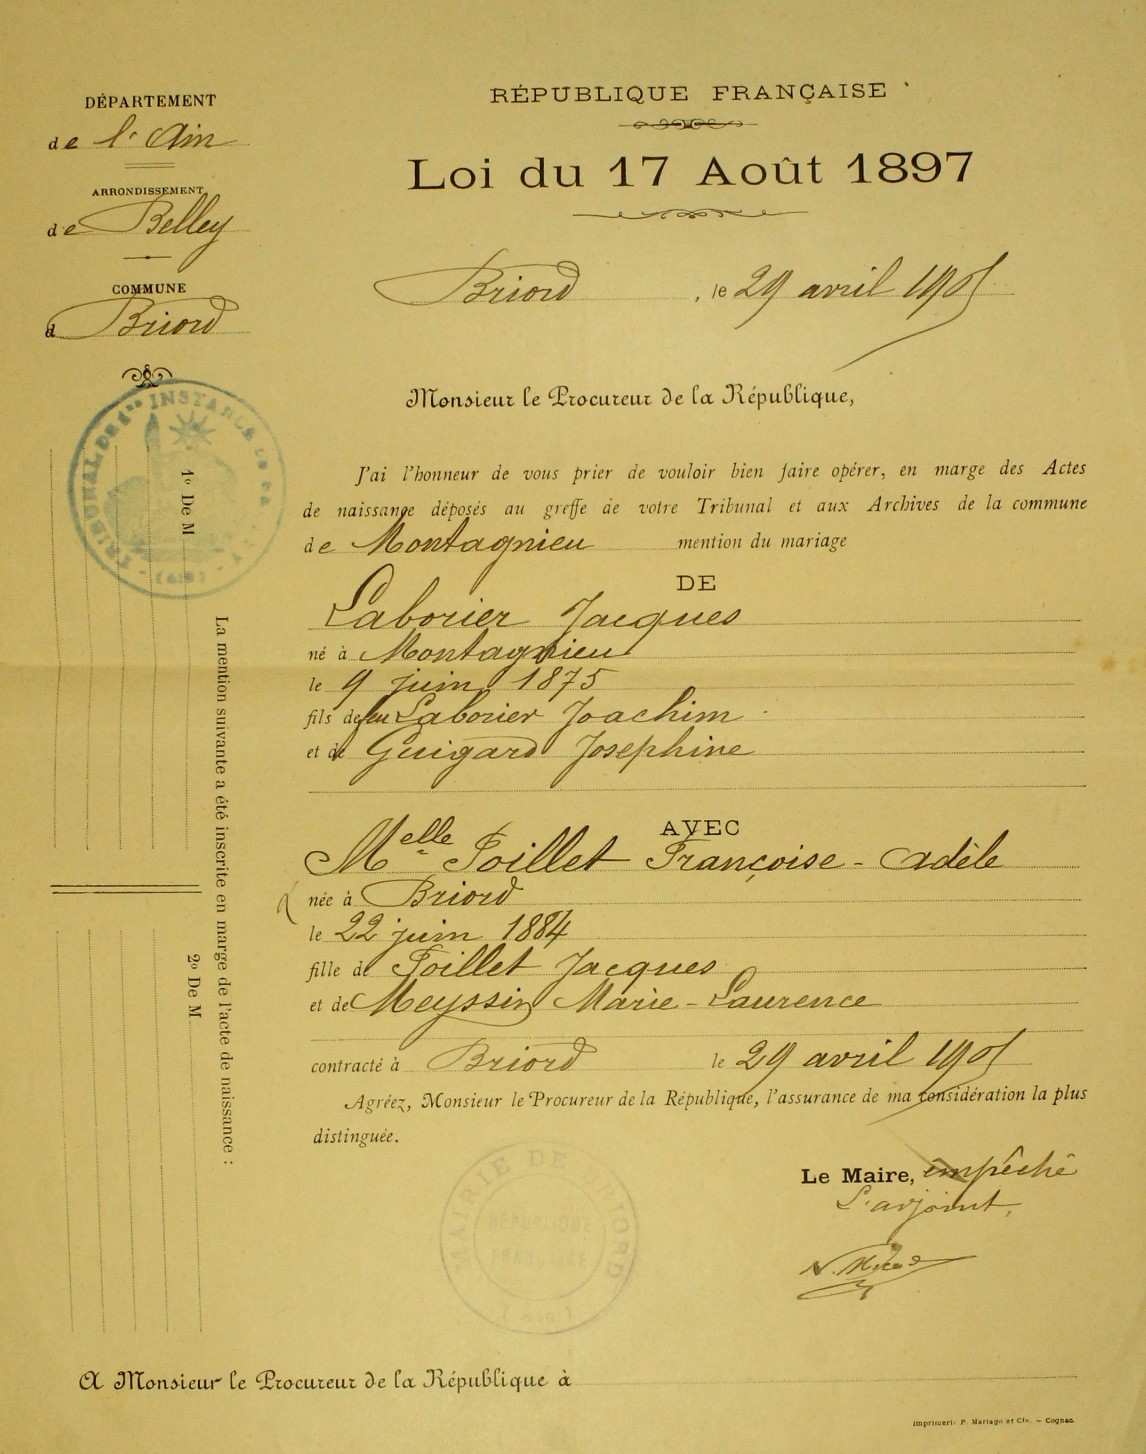 DÉPARTEMENT
de l'Ain
ARRONDISSEMENT
de Belley
COMMUNE
d Briord
RÉPUBLIQUE FRANÇAISE
Loi du 17 Août 1897
Briord, le 29 avril 1905
Monsieur le Procureur de la République,
J'ai l'honneur de vous prier de vouloir bien faire opérer, en marge des Actes
de naissance déposés au greffe de votre Tribunal et aux Archives de la commune
de Montagnieu mention du mariage
DE
Laborier Jacques
né à Montagnieu
le 9 juin 1875
fils de feu Laborier Joachim
et de Guigard Josephine
AVEC
Melle Poillet Françoise - Adèle
née à Briord
le 22 juin 1884
fille de Poillet Jacques
et de Meyssin Marie - Laurence
contracté à Briord le 29 avril 1905
Agréez, Monsieur le Procureur de la République, l'assurance de ma considération la plus
distinguée.
Le Maire, empêché
L'adjoint,
MAIRIE DE BRIORD
RÉPUBLIQUE
FRANÇAISE
(AIN)
TRIBUNAL DE 1re INSTANCE
(AIN)
1º De M
La mention suivante a été inscrite en marge de l'acte de naissance :
2º De M
A Monsieur le Procureur de la République à
Imprimerie P. Mariago et Cie. – Cognac.